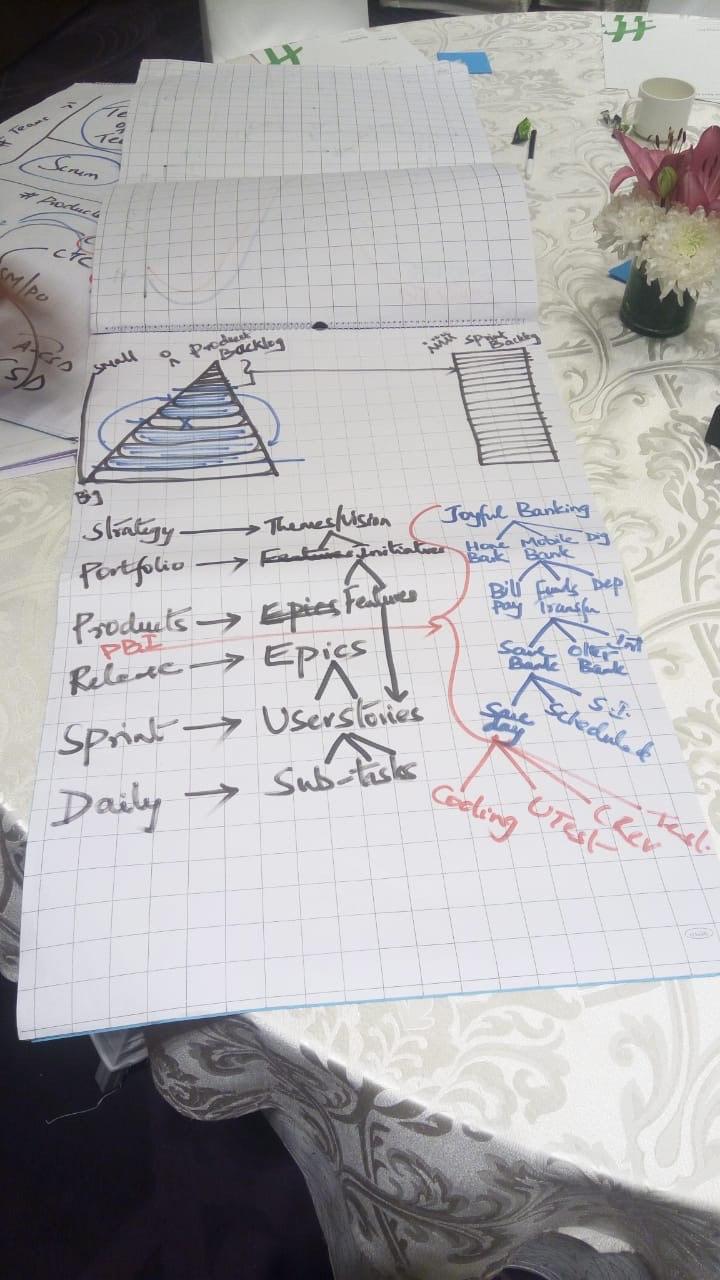 # Teams
Scrum
# Product
SM/PO
A-CSD
CSD
Small
Product
Backlog
Sprint Backlog
Big
Strategy → Themes/Vision
Portfolio → Features Initiatives
Products → Epics Features
PBI
Release → Epics
Sprint → Userstories
Daily → Sub-tasks
Joyful Banking
Home Bank
Mobile Bank
Dig
Bill Pay
Funds Transfer
Dep
Same Bank
Other Bank
Int
Same Day
Schedule
S.I.
Coding
UTest
CRev
Test